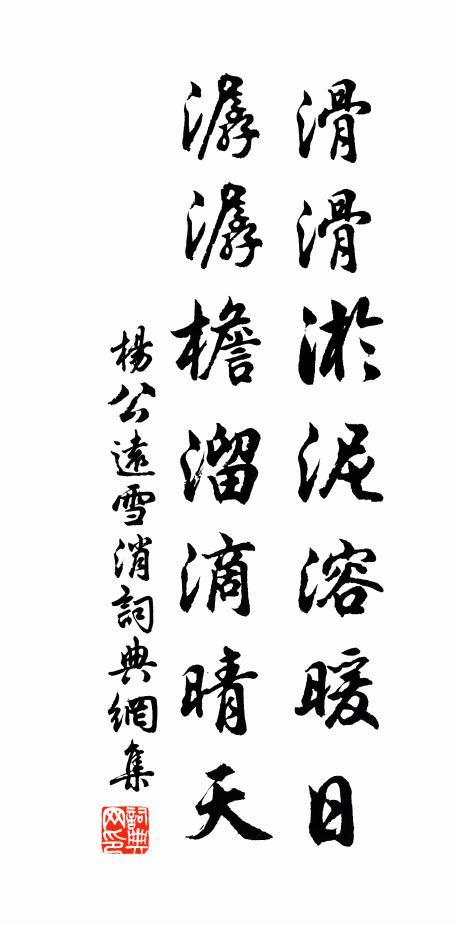 滑滑淤泥溶暖日
潺潺檐溜滴晴天
楊公遠雪消詞典網集
詞典網印